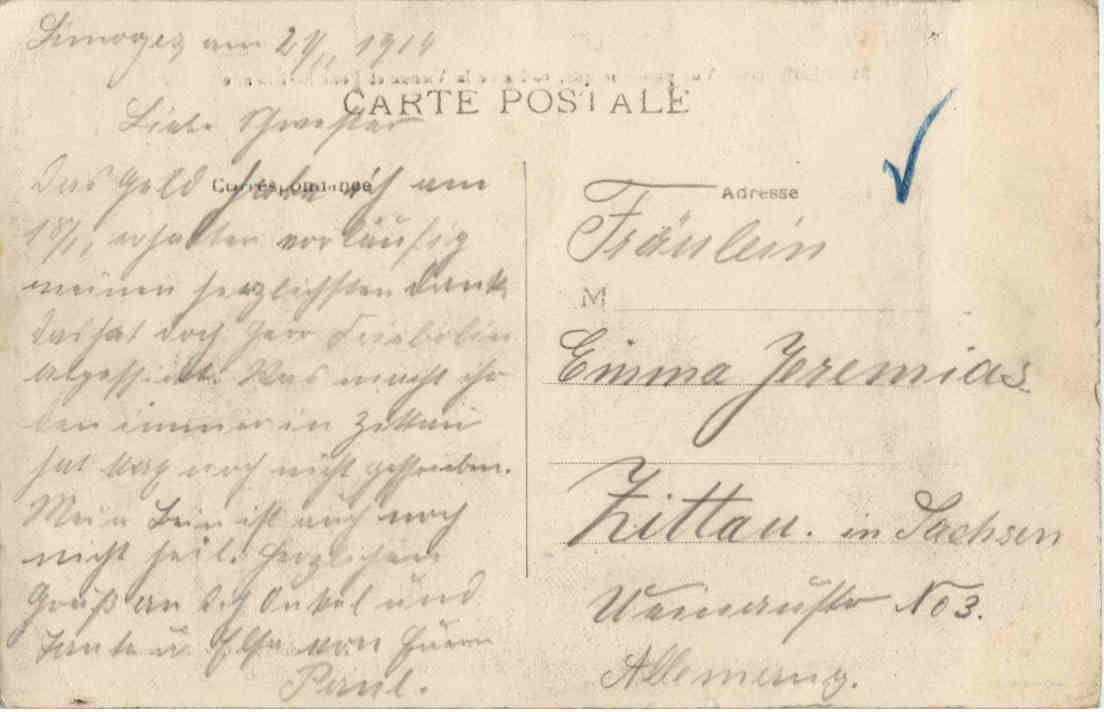 Limoges am 21/11 1914
CARTE POSTALE
Liebe Schwester
Correspondance
Das Geld habe ich am
18/11 erhalten vorläufig
meinen herzlichsten Dank
das hat doch Herr
abgeschickt. Was macht ihr
den immer in Zittau
hat Max noch nicht geschrieben.
Mein Bein ist auch noch
nicht heil. Herzlichen
Gruß an Dich Onkel und
Tante u. Else von Euern
Paul.
Adresse
Fräulein
M
Emma Jeremias
Zittau. in Sachsen
No 3.
Allemang.